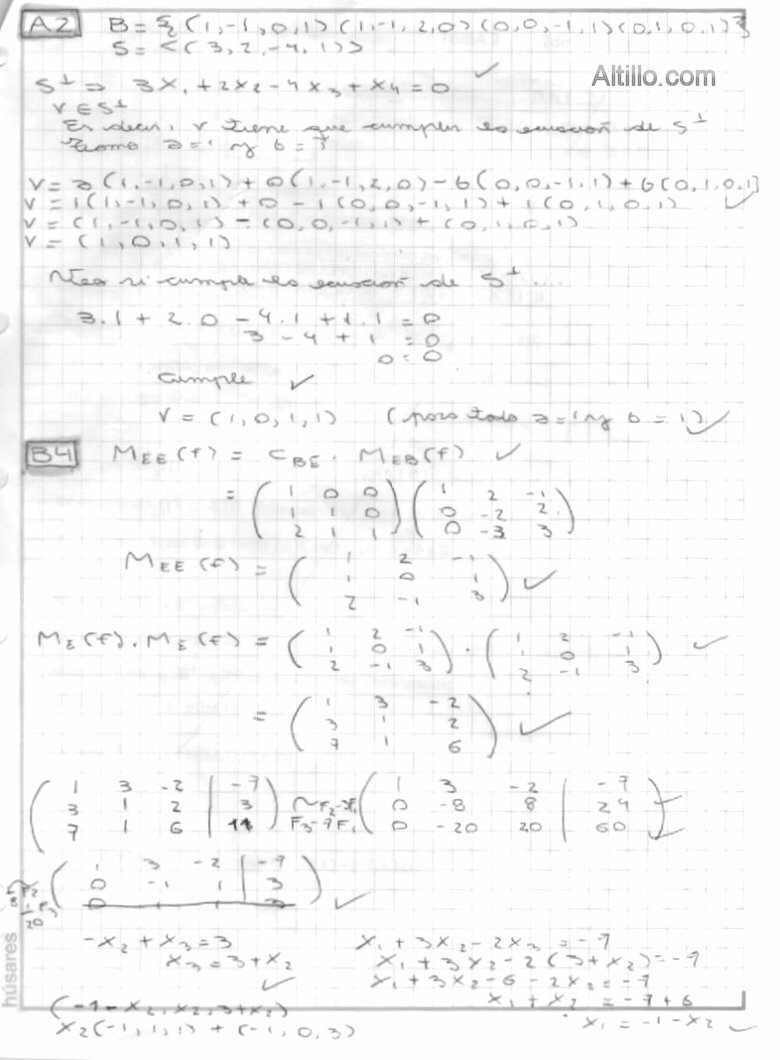 A2 B = {(1,-1,0,1)(1,-1,2,0)(0,0,-1,1)(0,1,0,1)}
S = <(3,2,-4,1)>
Altillo.com
S⊥ ⇒ 3x₁+2x₂-4x₃+x₄=0 ✓
v ∈ S⊥
Es decir, v tiene que cumplir la ecuación de S⊥
Tomo a=1 y b=1
v = a(1,-1,0,1) + 0(1,-1,2,0) - b(0,0,-1,1) + b(0,1,0,1)
v = 1(1,-1,0,1) + 0 - 1(0,0,-1,1) + 1(0,1,0,1) ✓
v = (1,-1,0,1) - (0,0,-1,1) + (0,1,0,1)
v = (1,0,1,1)
Veo si cumple la ecuación de S⊥ ....
3.1 + 2.0 - 4.1 + 1.1 = 0
3 - 4 + 1 = 0
0 = 0
Cumple ✓
v = (1,0,1,1) (para todo a=1 y b=1) ✓
B4 M_EE(f) = C_BE . M_EB(f) ✓
= (1 0 0) (1 2 -1)
(1 1 0) (0 -2 2)
(2 1 1) (0 -3 3)
M_EE(f) = (1 2 -1)
(1 0 1) ✓
(2 -1 3)
M_E(f).M_E(f) = (1 2 -1) . (1 2 -1) ✓
(1 0 1) (1 0 1)
(2 -1 3) (2 -1 3)
= (1 3 -2)
(3 1 2) ✓
(7 1 6)
(1 3 -2 | -7) (1 3 -2 | -7)
(3 1 2 | 3) ~F₂-3F₁ (0 -8 8 | 24) ✓
(7 1 6 | 11) F₃-7F₁ (0 -20 20 | 60) ✓
(1 3 -2 | -7)
(0 -1 1 | 3)
1/20 F₃ ✓
-x₂+x₃=3 x₁+3x₂-2x₃=-7
x₃=3+x₂ x₁+3x₂-2(3+x₂)=-7
✓ x₁+3x₂-6-2x₂=-7
(-1-x₂,x₂,3+x₂) x₁+x₂=-7+6
x₂(-1,1,1)+(-1,0,3) x₁=-1-x₂ ✓
húsares